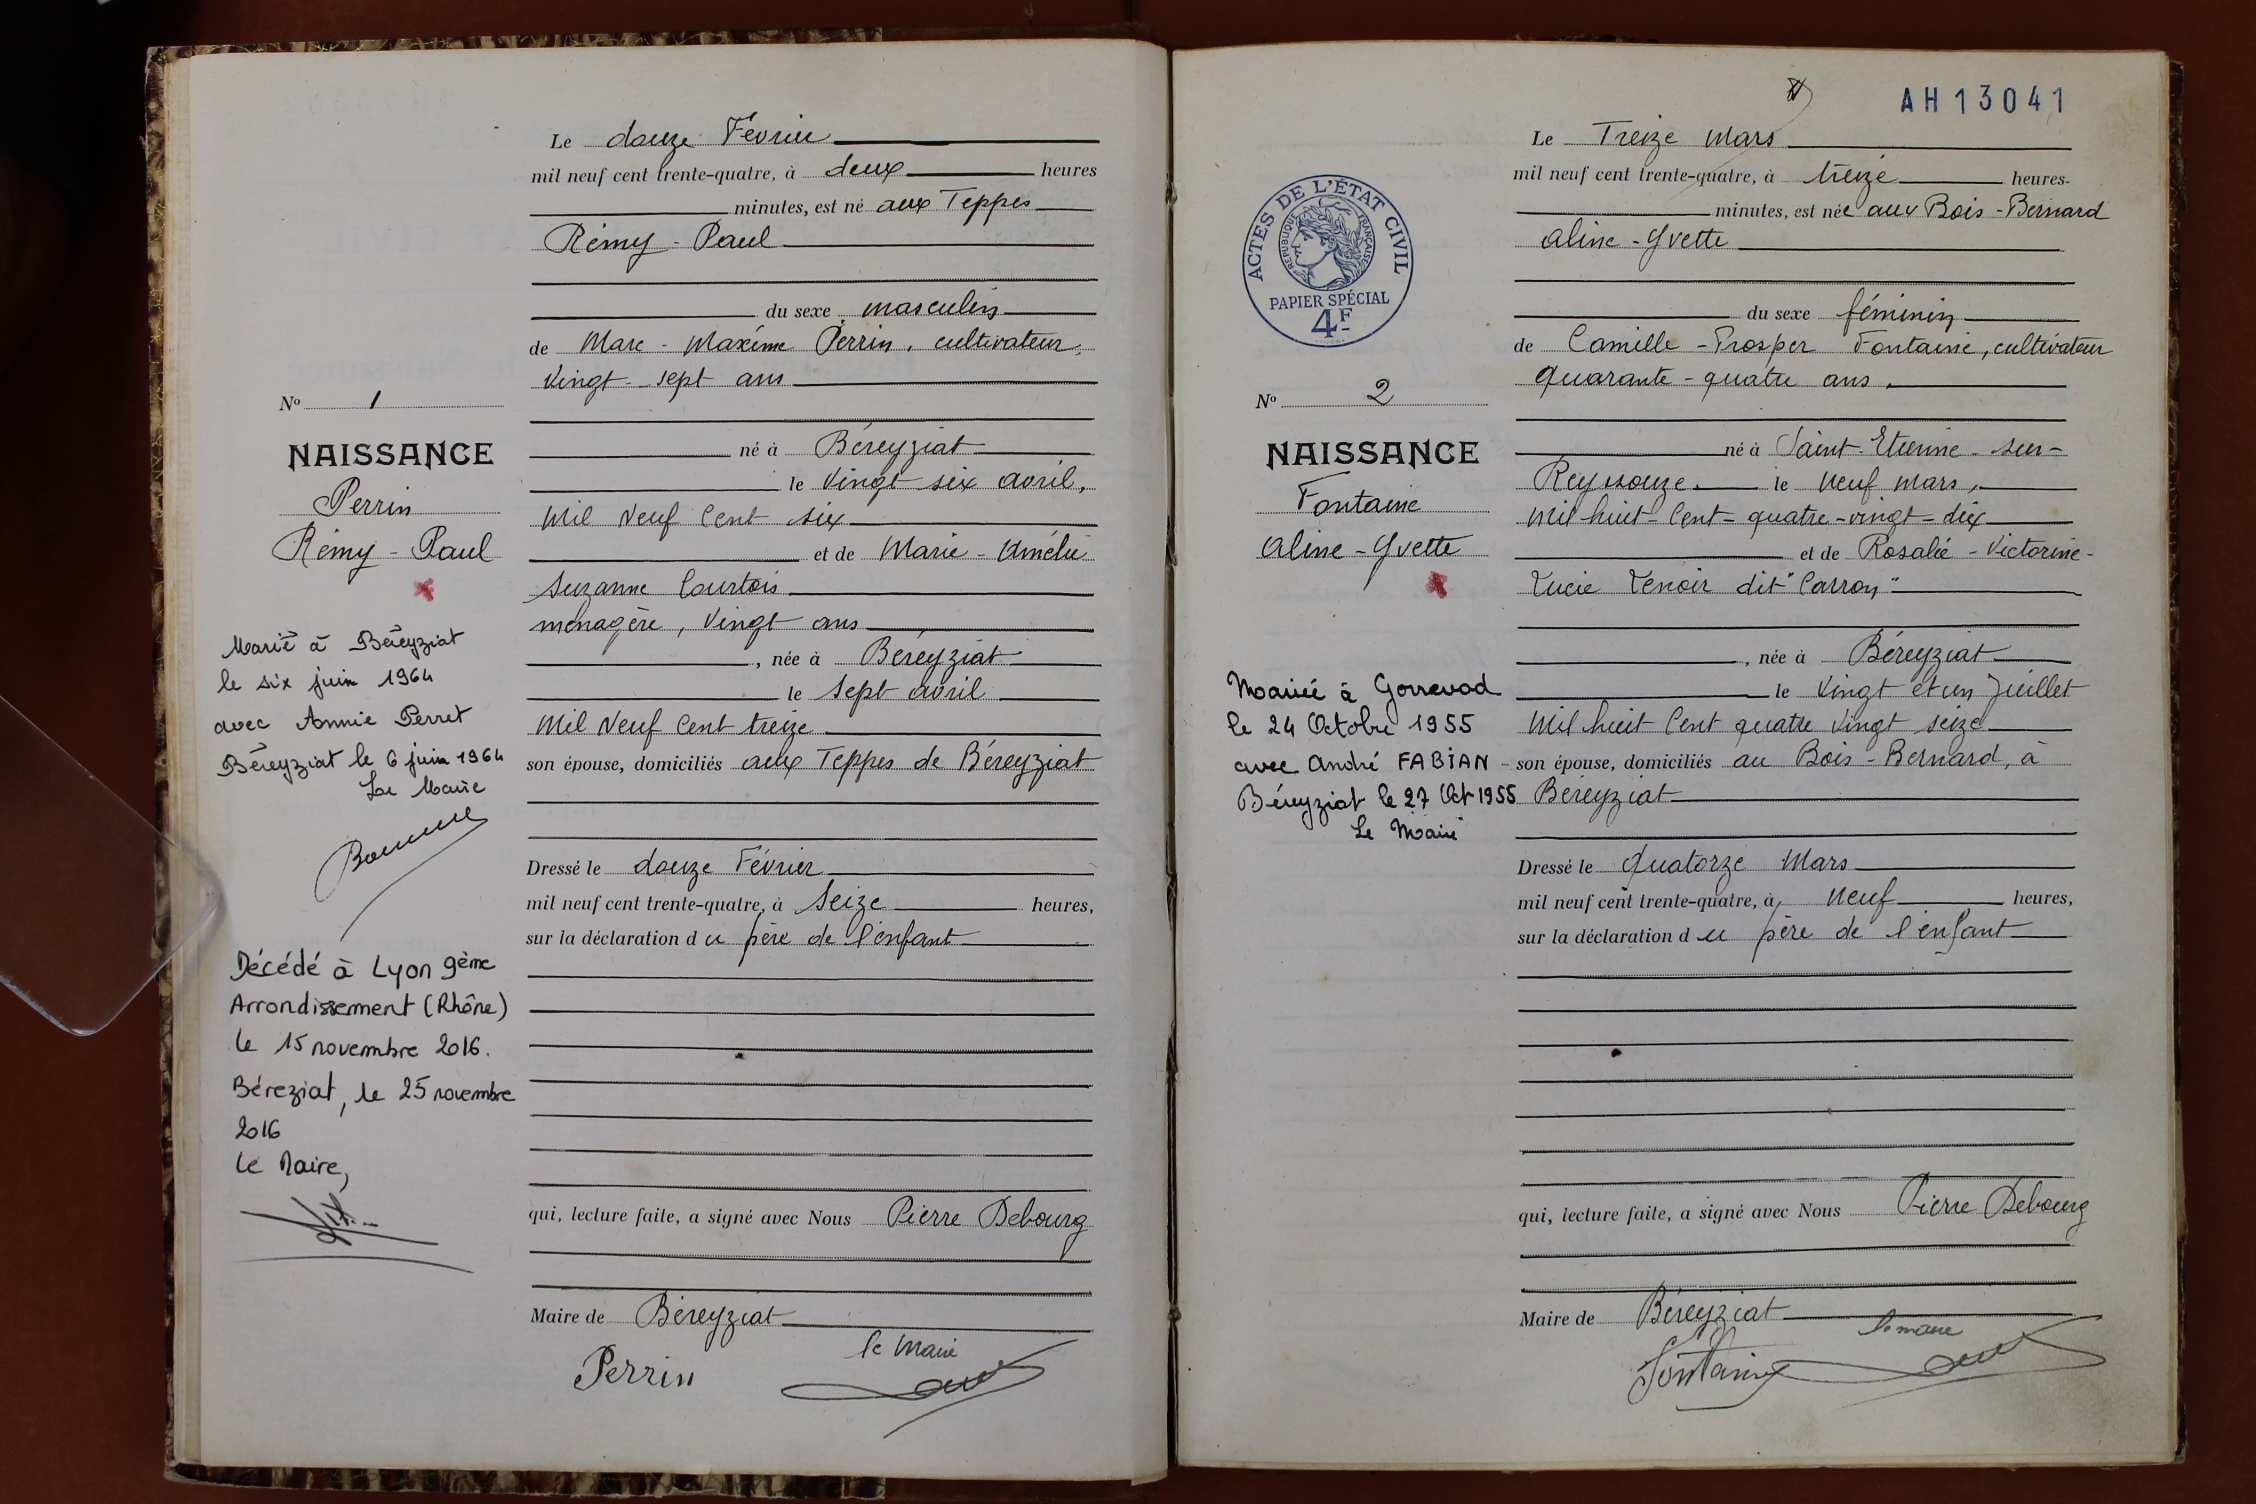 Le douze Février
mil neuf cent trente-quatre, à deux heures
minutes, est né aux Teppes
Rémy - Paul
du sexe masculin
de Marc - Maxime Perrin, cultivateur,
vingt - sept ans
né à Béreyziat
le vingt six avril,
mil neuf cent six
et de Marie - Amélie
Suzanne Courtois
ménagère, vingt ans
, née à Béreyziat
le sept avril
mil neuf cent treize
son épouse, domiciliés aux Teppes de Béreyziat
Dressé le douze Février
mil neuf cent trente-quatre, à seize heures,
sur la déclaration du père de l'enfant
qui, lecture faite, a signé avec Nous Pierre Debourg
Maire de Béreyziat
le Maire
Perrin
No 1
NAISSANCE
Perrin
Rémy - Paul
Marié à Béreyziat
le six juin 1964
avec Annie Perret
Béreyziat le 6 juin 1964
Le Maire
Décédé à Lyon 9ème
Arrondissement (Rhône)
le 15 novembre 2016.
Béreziat, le 25 novembre
2016
Le Maire,
AH13041
Le Treize mars
mil neuf cent trente-quatre, à treize heures.
minutes, est née aux Bois - Bernard
Aline - Yvette
du sexe féminin
de Camille - Prosper Fontaine, cultivateur
quarante - quatre ans,
né à Saint - Etienne - sur -
Reyssouze le neuf mars,
mil huit - cent - quatre - vingt - dix
et de Rosalie - Victorine -
Lucie Lenoir dit "Carron"
, née à Béreyziat
le vingt et un Juillet
mil huit cent quatre vingt seize
son épouse, domiciliés au Bois - Bernard, à
Béreyziat
Dressé le quatorze Mars
mil neuf cent trente-quatre, à neuf heures,
sur la déclaration du père de l'enfant
qui, lecture faite, a signé avec Nous Pierre Debourg
Maire de Béreyziat
le maire
Fontaine
ACTES DE L'ÉTAT CIVIL
RÉPUBLIQUE FRANÇAISE
PAPIER SPÉCIAL
4F
No 2
NAISSANCE
Fontaine
Aline - Yvette
Mariée à Gorrevod
le 24 Octobre 1955
avec André FABIAN -
Béreyziat le 27 Oct 1955
Le Maire